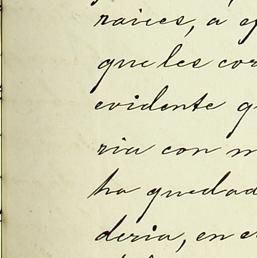 raices, a
que les cor
evidente q
ria con m
ha quedad
deria, en e